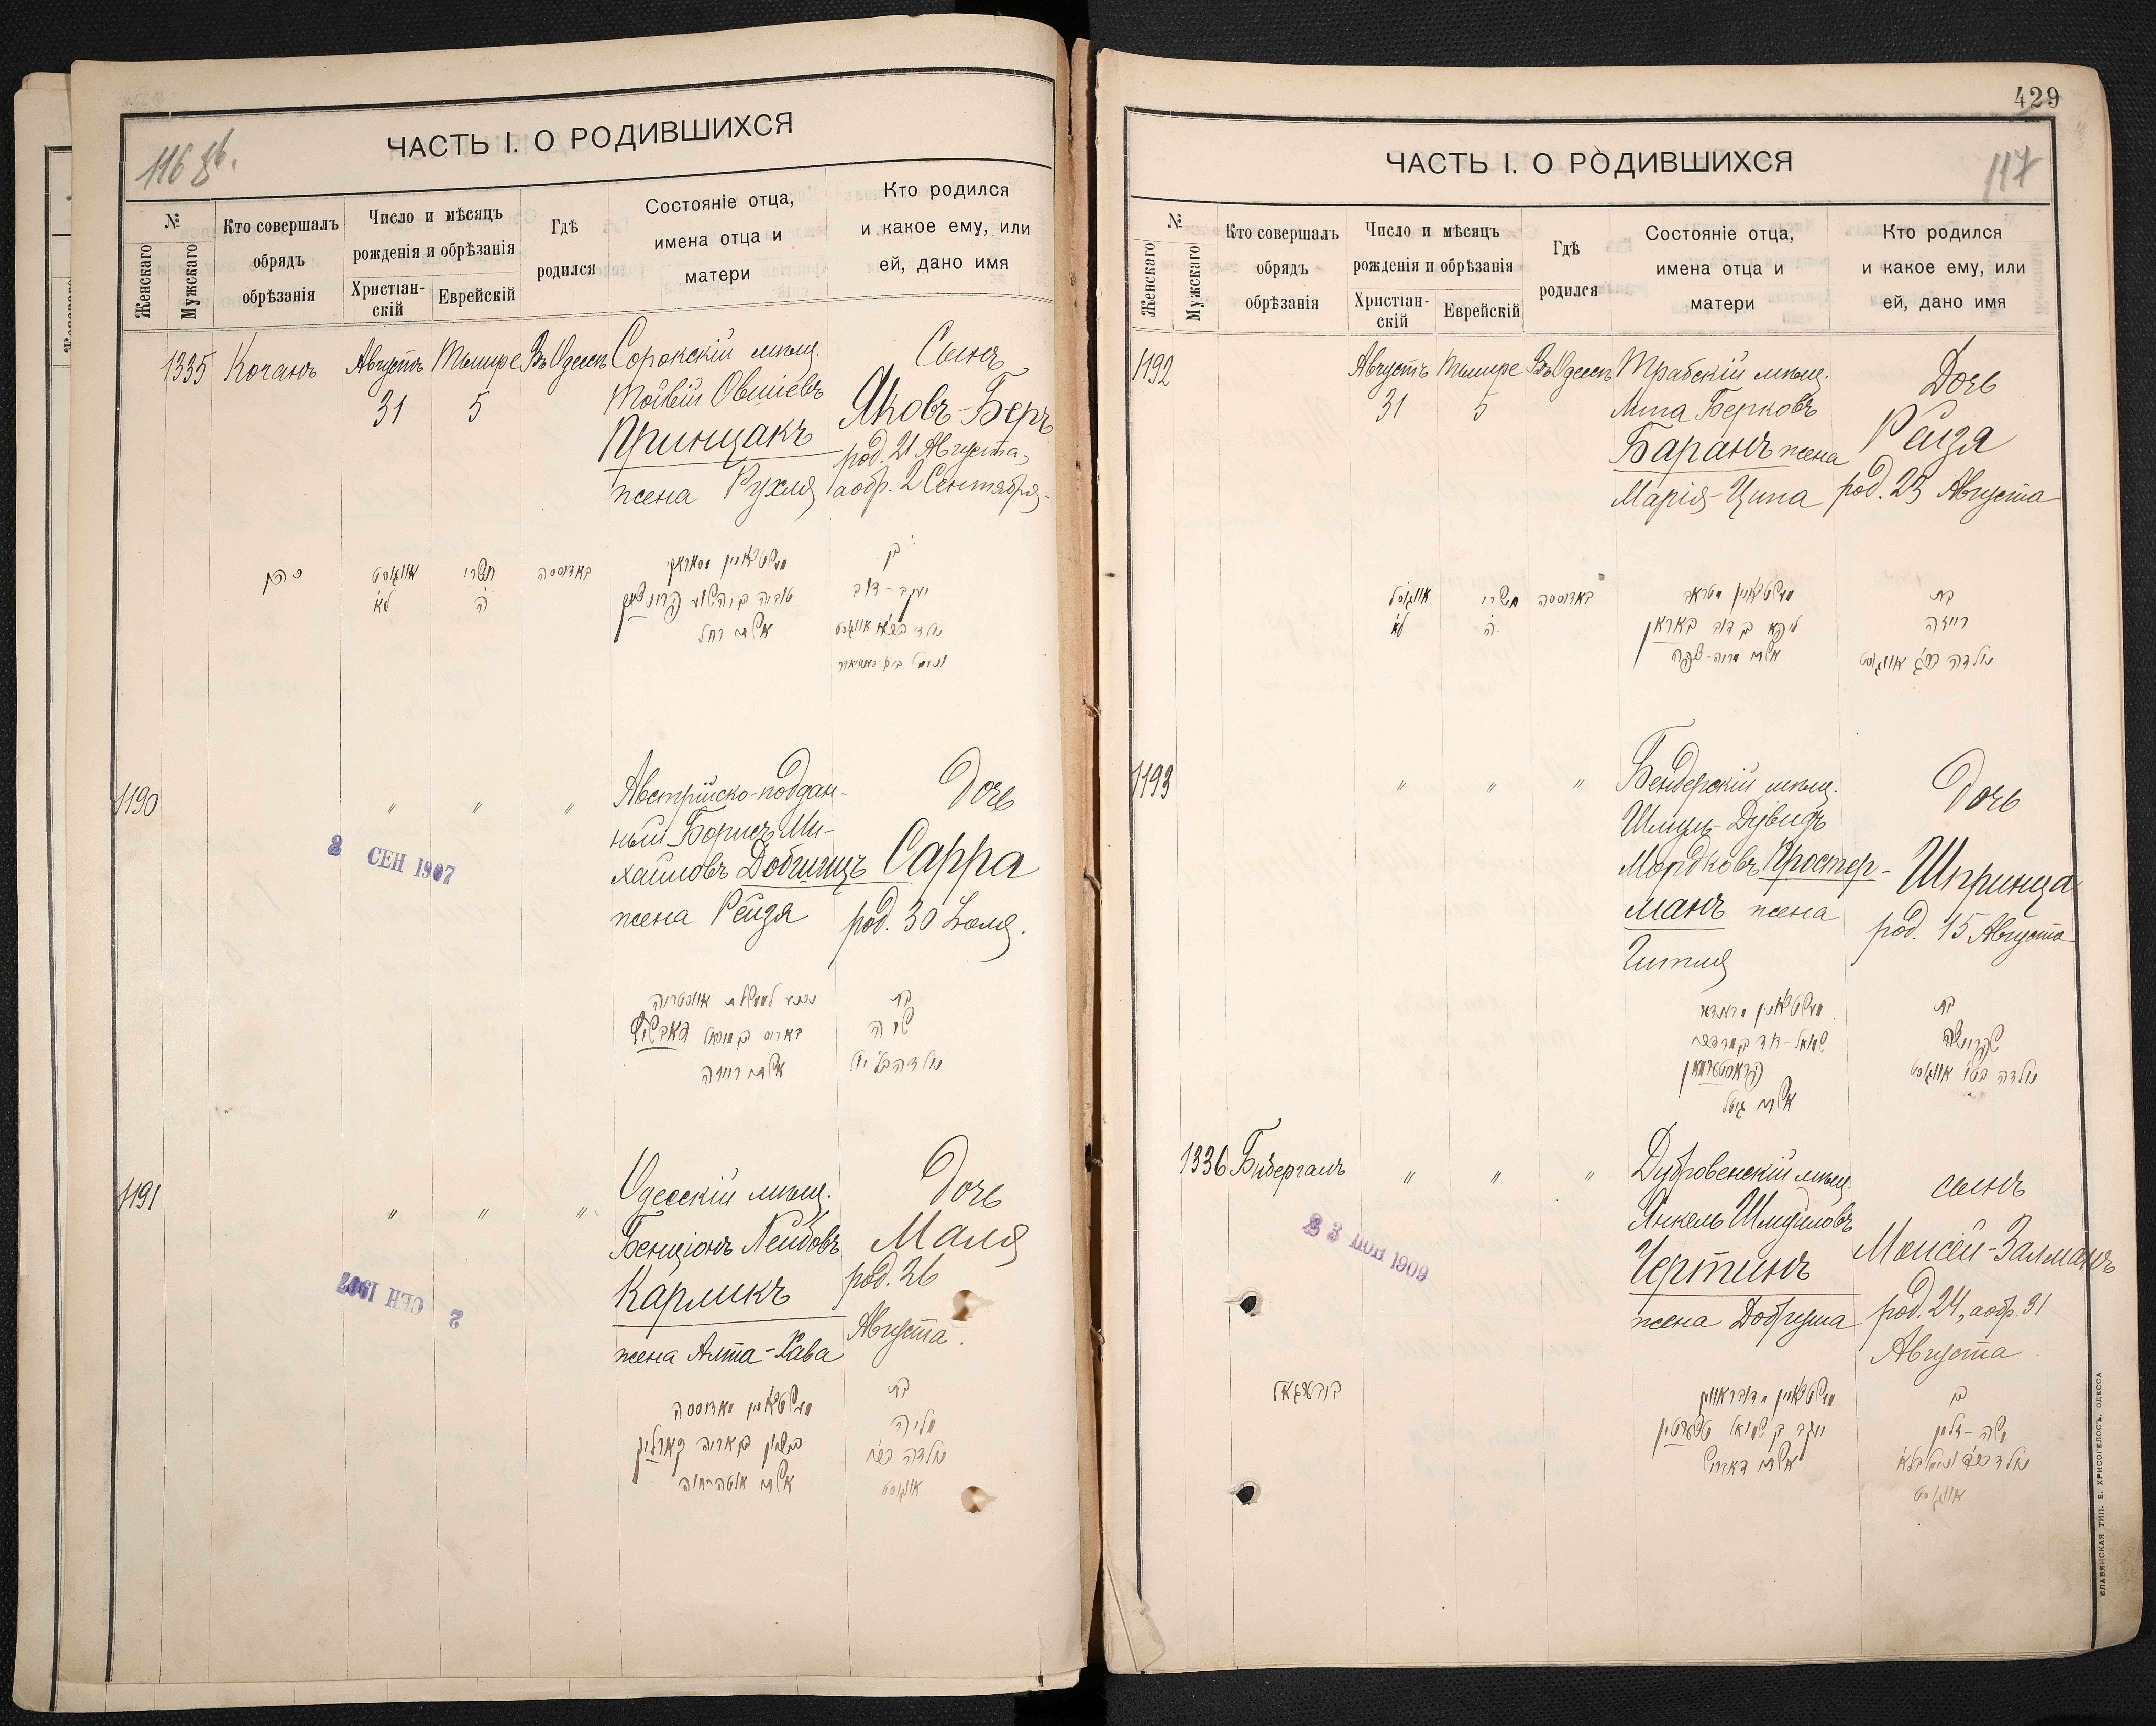 116 об.
ЧАСТЬ I. О РОДИВШИХСЯ
№
Женскаго
Мужскаго
Кто совершалъ
обрядъ
обрѣзанія
Число и мѣсяцъ
рожденія и обрѣзанія
Христіан-
скій
Еврейскій
Гдѣ
родился
Состояніе отца,
имена отца и
матери
Кто родился
и какое ему, или
ей, дано имя
1335
Коганъ
Августъ
31
Тишре
5
Въ Одессѣ
Сорокскій мѣщ.
Тойвій Овшіевъ
Принцакъ
жена Рухля
Сынъ
Яковъ-Беръ
род. 21 Августа,
а обр. 2 Сентября
כהן
אוויגוסט
לא
תשרי
ה
באדוססה
אשתו רחל
בן
יעקב-דוב
1190
" " "
2 СЕН 1907
Австрійско-поддан-
ный Борисъ Ми-
хайловъ Добшицъ
жена Рейзя
Дочь
Сарра
род. 30 Іюля.
אשתו רייזה
בת
שרה
1191
" " "
2 СЕН 1907
Одесскій мѣщ.
Бенціонъ Лейбовъ
Карликъ
жена Алта-Хава
Дочь
Маля
род. 26
Августа
בת
מליה
אוויגוסט
429
117
ЧАСТЬ I. О РОДИВШИХСЯ
№
Женскаго
Мужскаго
Кто совершалъ
обрядъ
обрѣзанія
Число и мѣсяцъ
рожденія и обрѣзанія
Христіан-
скій
Еврейскій
Гдѣ
родился
Состояніе отца,
имена отца и
матери
Кто родился
и какое ему, или
ей, дано имя
1192
Августъ
31
Тишре
5
Въ Одессѣ
Трабскій мѣщ.
Липа Берковъ
Баранъ жена
Марія-Ципа
Дочь
Рейзя
род. 23 Августа
לא
תשרי
ה
באדוססה
בת
רייזה
1193
" " "
Бендерскій мѣщ.
Шмилъ-Дувидъ
Мордковъ Простер-
манъ жена
Гитля
Дочь
Шпринца
род. 15 Августа
אשתו גיטל
בת
שפרינצה
1336
Бибергалъ
" " "
Дубровенскій мѣщ.
Янкель Шмуиловъ
Чертинъ
жена Добруша
сынъ
Моисей-Залманъ
род. 24, а обр. 31
Августа
בן
משה-זלמן
אוויגוסט
СЛАВЯНСКАЯ ТИП. Е. ХРИСОГЕЛОСЪ. ОДЕССА